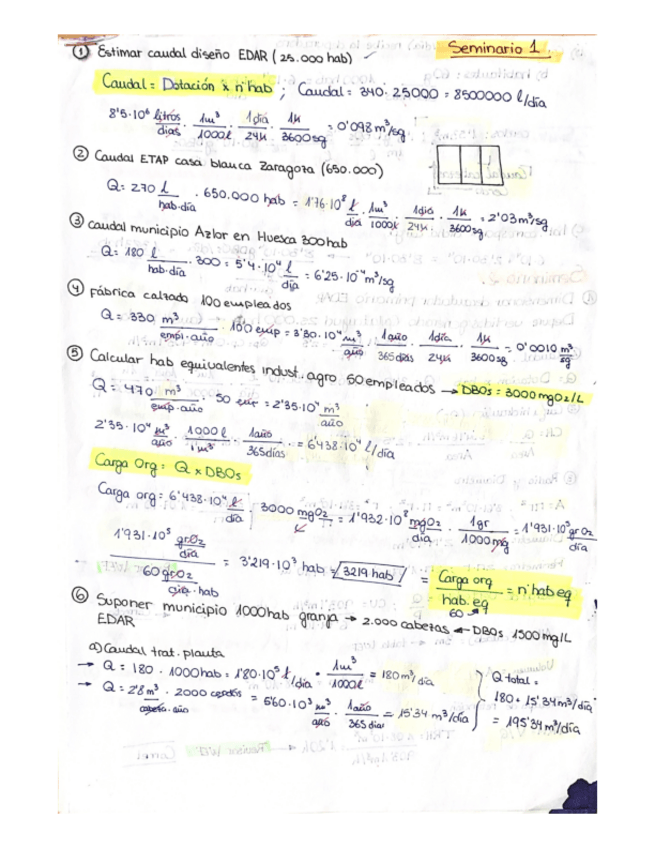 Seminario 1
① Estimar caudal diseño EDAR (25.000 hab)
Caudal = Dotación x nº hab ; Caudal = 340 · 25000 = 8500000 l/día
8'5·10⁶ litros/días · 1m³/1000l · 1día/24h · 1h/3600sg = 0'098 m³/sg
② Caudal ETAP casa blanca Zaragoza (650.000)
Q = 270 l/hab·día · 650.000 hab = 1'76·10⁸ l/día · 1m³/1000l · 1día/24h · 1h/3600sg = 2'03 m³/sg
③ Caudal municipio Azlor en Huesca 300 hab
Q = 180 l/hab·día · 300 = 5'4·10⁴ l/día = 6'25·10⁻⁴ m³/sg
④ Fábrica calzado 100 empleados
Q = 330 m³/empl·año · 100 emp = 3'30·10⁴ m³/año · 1año/365días · 1día/24h · 1h/3600sg = 0'0010 m³/sg
⑤ Calcular hab equivalentes indust. agro. 50 empleados → DBO5 = 3000 mgO2/L
Q = 470 m³/emp·año · 50 emp = 2'35·10⁴ m³/año
2'35·10⁴ m³/año · 1000l/1m³ · 1año/365días = 6'438·10⁴ l/día
Carga Org = Q x DBO5
Carga org = 6'438·10⁴ l/día · 3000 mgO2/L = 1'932·10⁸ mgO2/día · 1gr/1000mg = 1'931·10⁵ grO2/día
1'931·10⁵ grO2/día / 60 grO2/día·hab = 3'219·10³ hab 3219 hab = Carga org/hab.eq = nº hab eq
60
⑥ Suponer municipio 1000hab granja → 2.000 cabezas ← DBO5 1500 mg/L
EDAR
a) Caudal trat. planta
→ Q = 180 · 1000hab = 1'80·10⁵ l/día · 1m³/1000l = 180 m³/día
→ Q = 2'8 m³/cabeza·año · 2000 cerdos = 5'60·10³ m³/año · 1año/365días = 15'34 m³/día
Q total =
180 + 15'34 m³/día
= 195'34 m³/día